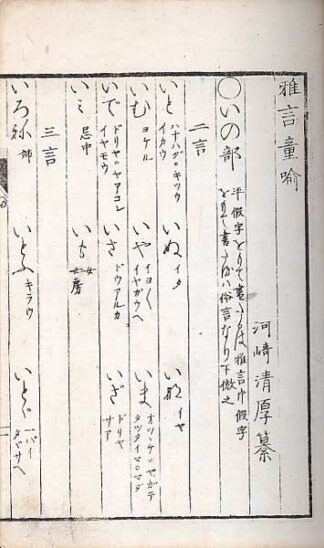 雅言童喩
河崎清厚纂
○いの部
平假字をもて書るは雅言片假字
をもて書るは俗言なり下傚之
二言
いと ハナハダ○キツウ イカウ
いぬ イタ
いね イヤ
いむ ヨケル
いや イヨ〱 イヤガウヘ
いま オツヽケ○ヤガテ タツタイマ○マダ
いで ドリヤ○ヤアコレ イヤモウ
いさ ドウアルカ
いざ ドリヤ サア
いミ 忌中
いも 女房
三言
いろね 姉
いとふ キラウ
いとゞ 一バイ タヾサヘ